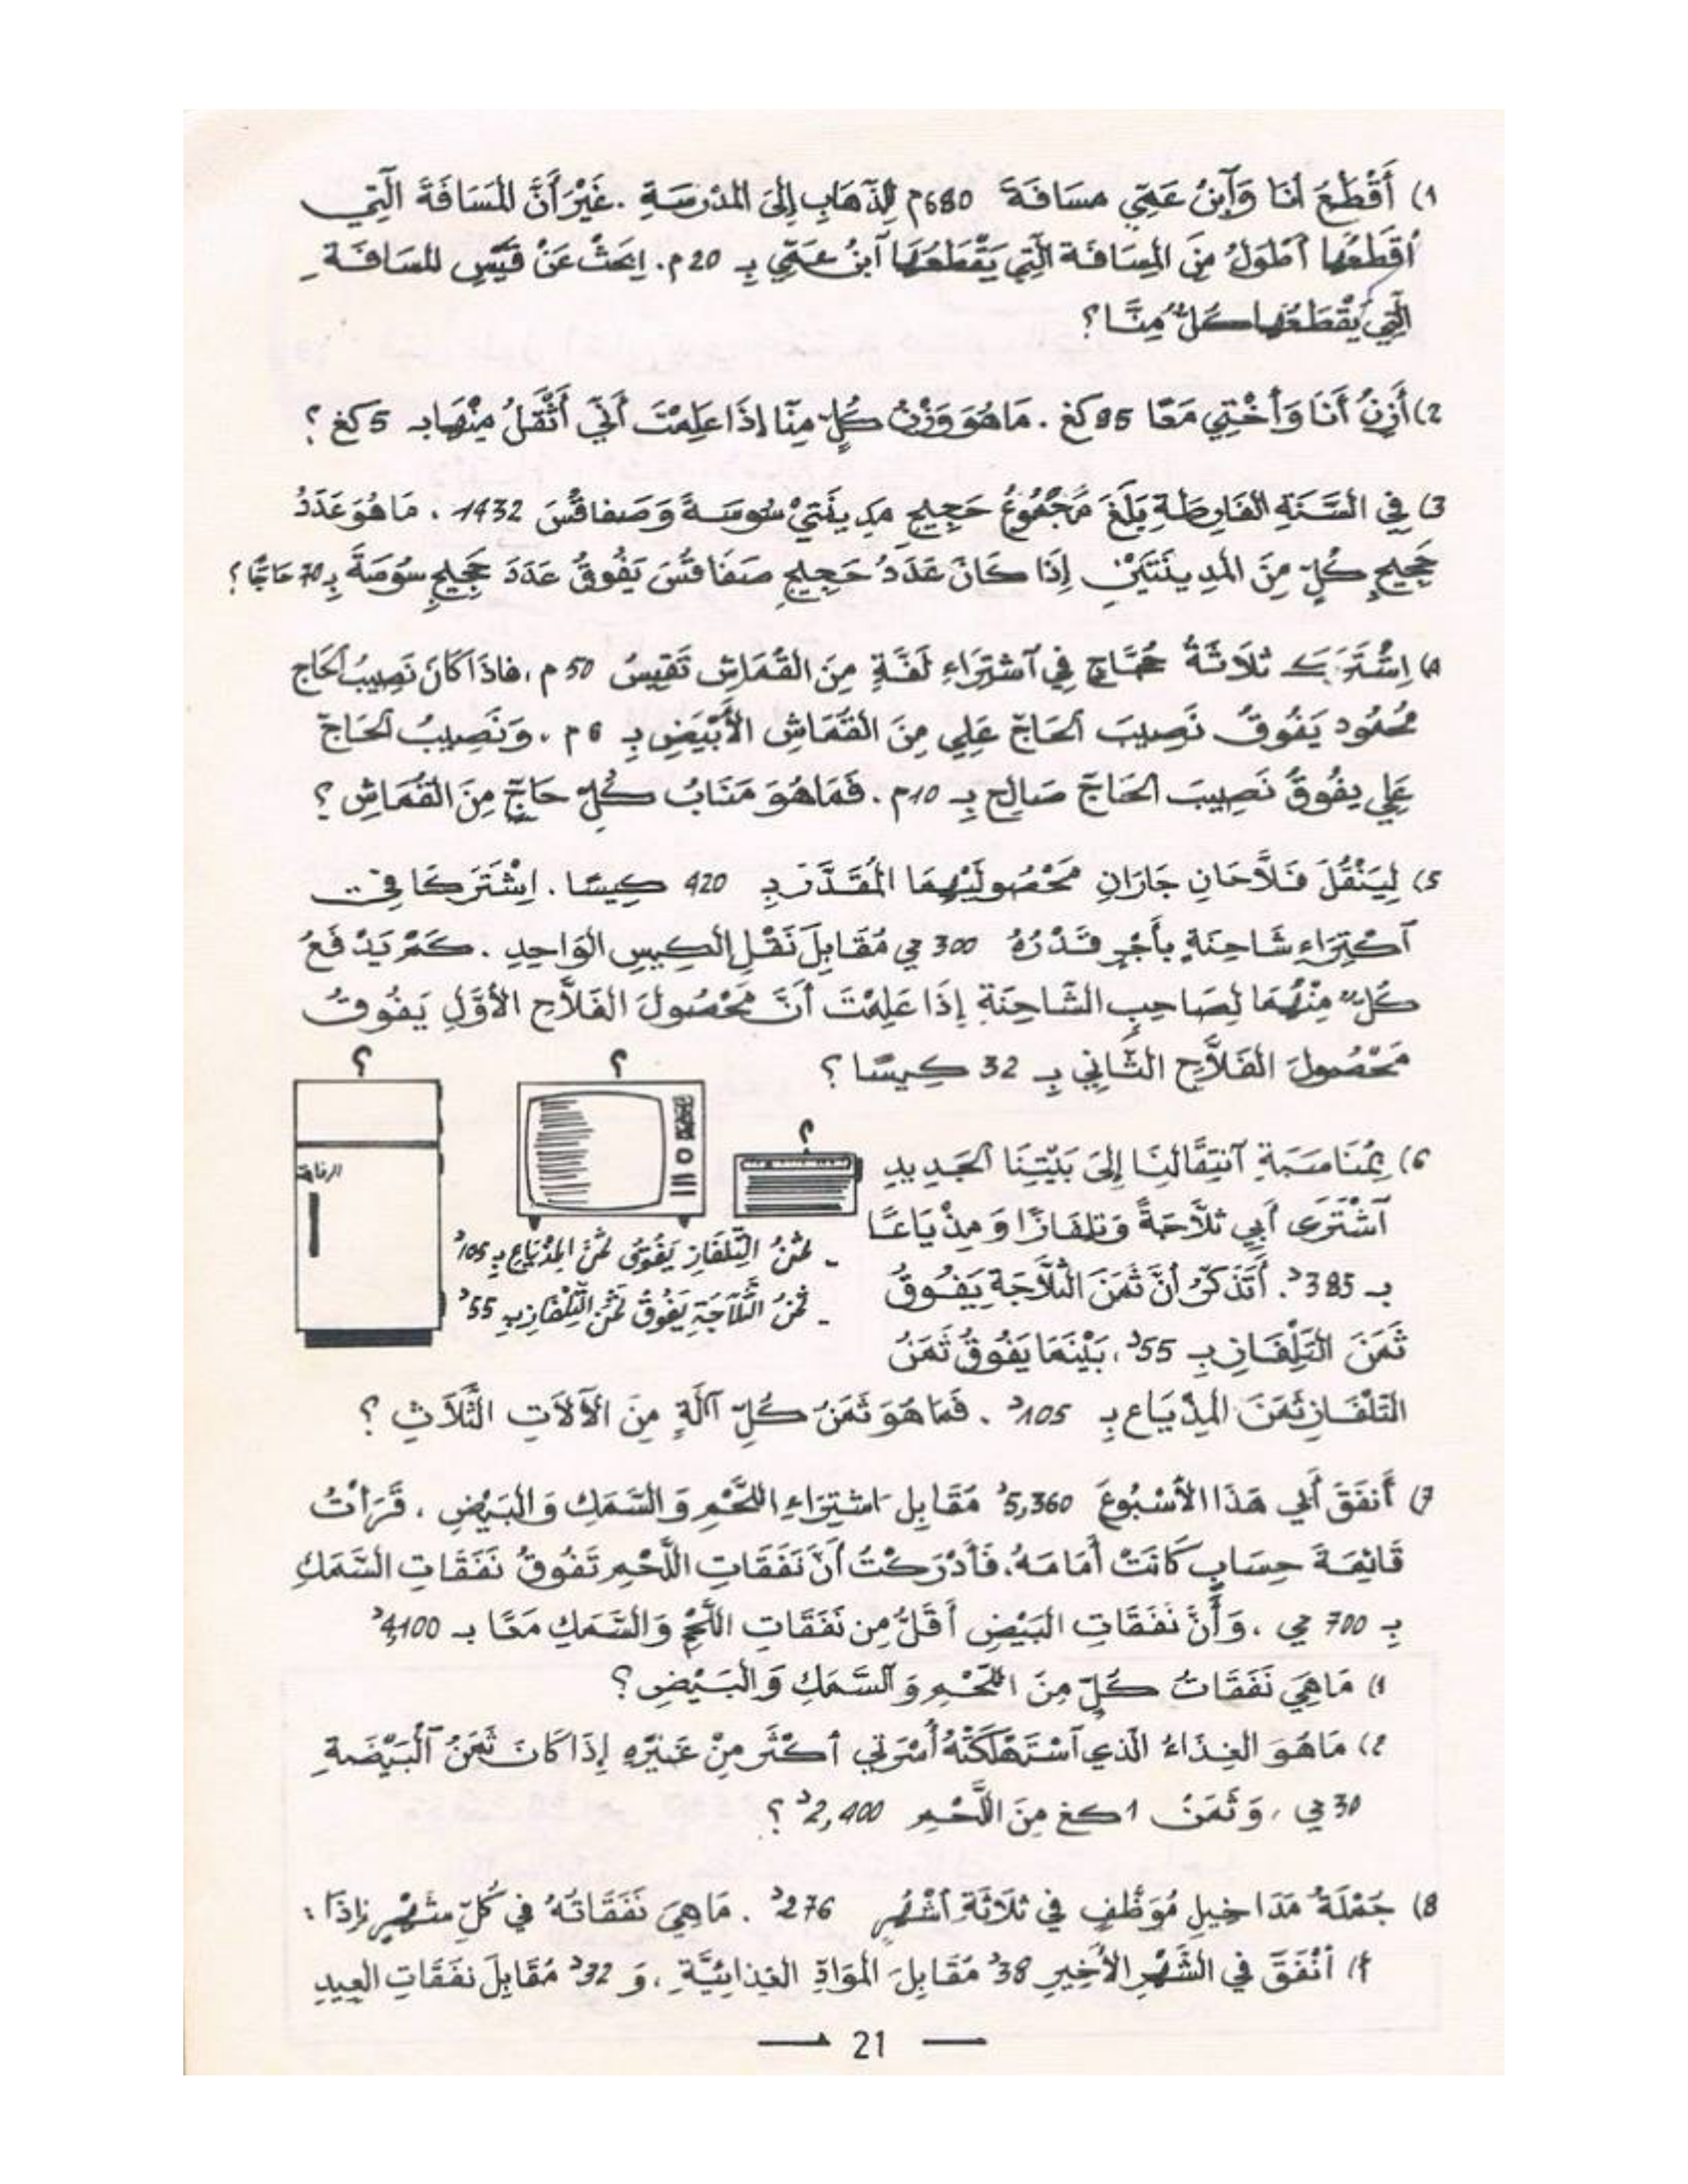 1) أَقْطَعُ أَنَا وَٱبْنُ عَمِّي مسَافَةَ 680 م لِلذَّهَابِ إِلَى المَدْرَسَةِ . غَيْرَ أَنَّ المَسَافَةَ الَّتِي
أَقْطَعُهَا أَطْوَلُ مِنَ المَسَافَة الَّتِي يَقْطَعُهَا ٱبْنُ عَمِّي بِـ 20 م. اِبْحَثْ عَنْ قَيْسِ المسَافَةِ
الَّتِي يَقْطَعُهَا كُلٌّ مِنَّا ؟
2) أَزِنُ أَنَا وَأُخْتِي مَعًا 85 كغ . مَا هُوَ وَزْنُ كُلٍّ مِنَّا إِذَا عَلِمْتَ أَنِّي أَثْقَلُ مِنْهَا بـ 5 كغ ؟
3) فِي السَّنَةِ الفَارِطَةِ بَلَغَ مَجْمُوعُ حَجِيجِ مَدِينَتَيْ سُوسَةَ وَصَفَاقُسَ 1432 . مَا هُوَ عَدَدُ
حَجِيجِ كُلٍّ مِنَ المَدِينَتَيْنِ إِذَا كَانَ عَدَدُ حَجِيجِ صَفَاقُسَ يَفُوقُ عَدَدَ حَجِيجِ سُوسَةَ بِـ 70 حَاجًّا ؟
4) اِشْتَرَكَ ثَلَاثَةُ حُجَّاجٍ فِي ٱشْتِرَاءِ لَفَّةٍ مِنَ القُمَاشِ تَقِيسُ 50 م ، فَإِذَا كَانَ نَصِيبُ ٱلحَاجّ
مَحْمُود يَفُوقُ نَصِيبَ ٱلحَاجّ عَلِي مِنَ القُمَاشِ الأَبْيَضِ بِـ 6 م ، وَنَصِيبُ ٱلحَاجّ
عَلِي يفُوقُ نَصِيبَ الحَاجّ صَالِح بِـ 10 م . فَمَا هُوَ مَنَابُ كُلِّ حَاجٍّ مِنَ القُمَاشِ ؟
5) لِيَنْقُلَ فَلَّاحَانِ جَارَانِ مَحْصُولَيْهِمَا المُقَدَّرَ بِـ 420 كِيسًا . اِشْتَرَكَا فِي
ٱكْتِرَاءِ شَاحِنَةٍ بِأَجْرٍ قَدْرُهُ 300 مي مُقَابِلَ نَقْلِ الكِيسِ الوَاحِدِ . كَمْ يَدْفَعُ
كُلٌّ مِنْهُمَا لِصَاحِبِ الشَّاحِنَةِ إِذَا عَلِمْتَ أَنَّ مَحْصُولَ الفَلَّاحِ الأَوَّلِ يَفُوقُ
مَحْصُولَ الفَلَّاحِ الثَّانِي بِـ 32 كِيسًا ؟
؟ ؟ ؟
6) بِمُنَاسَبَةِ ٱنْتِقَالِنَا إِلَى بَيْتِنَا ٱلجَدِيدِ
ٱشْتَرَى أَبِي ثَلَّاجَةً وَتِلْفَازًا وَ مِذْيَاعًا
بِـ 385 د. أَتَذَكَّرُ أَنَّ ثَمَنَ الثَّلَّاجَةِ يَفُوقُ
ثَمَنَ التِّلْفَازِ بِـ 55 د، بَيْنَمَا يَفُوقُ ثَمَنُ
التِّلْفَازِ ثَمَنَ المِذْيَاعِ بِـ 105 د . فَمَا هُوَ ثَمَنُ كُلِّ آلَةٍ مِنَ الآلَاتِ الثَّلَاثِ ؟
- ثَمَنُ التِّلْفَازِ يَفُوقُ ثَمَنَ المِذْيَاعِ بِـ 105 د
- ثَمَنُ الثَّلَّاجَةِ يَفُوقُ ثَمَنَ التِّلْفَازِ بِـ 55 د
7) أَنْفَقَ أَبِي هَذَا الأُسْبُوعَ 5,360 د مُقَابِلَ اشْتِرَاءِ اللَّحْمِ وَ السَّمَكِ وَ البَيْضِ ، قَرَأْتُ
قَائِمَةَ حِسَابٍ كَانَتْ أَمَامَهُ، فَأَدْرَكْتُ أَنَّ نَفَقَاتِ اللَّحْمِ تَفُوقُ نَفَقَاتِ السَّمَكِ
بِـ 700 مي ، وَ أَنَّ نَفَقَاتِ البَيْضِ أَقَلُّ مِن نَفَقَاتِ اللَّحْمِ وَالسَّمَكِ مَعًا بـ 4,100 د
1) مَا هِيَ نَفَقَاتُ كُلٍّ مِنَ اللَّحْمِ وَ ٱلسَّمَكِ وَ البَيْضِ ؟
2) مَا هُوَ الغِذَاءُ الَّذِي ٱسْتَهْلَكَتْهُ أُسْرَتِي أَكْثَر مِنْ غَيْرِهِ إِذَا كَانَ ثَمَنُ ٱلْبَيْضَةِ
30 مي ، وَ ثَمَنُ 1 كغ مِنَ اللَّحْمِ 2,400 د ؟
8) جُمْلَةُ مَدَاخِيلِ مُوَظَّفٍ فِي ثَلَاثَةِ أَشْهُرٍ 276 د . مَا هِيَ نَفَقَاتُهُ فِي كُلِّ شَهْرٍ إِذَا :
أ) أَنْفَقَ فِي الشَّهْرِ الأَخِيرِ 38 د مُقَابِلَ المَوَادِّ الغِذَائِيَّةِ ، وَ 32 د مُقَابِلَ نَفَقَاتِ العِيدِ
— 21 —